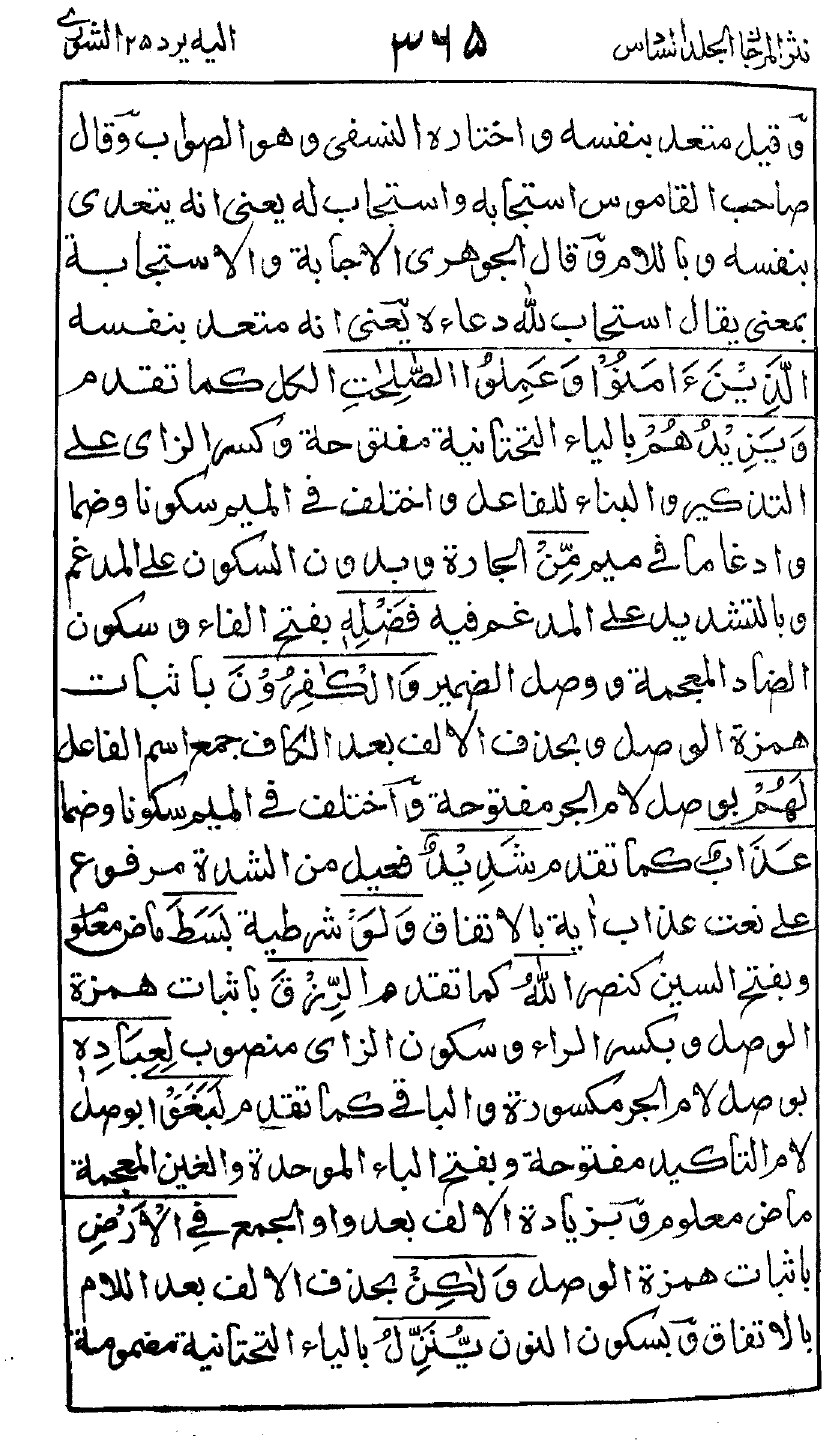 نثر المرجان المجلد السادس ۳۶۵ اليه يرد ۲۵ الشورى
وَقيل متعد بنفسه واختاره النسفى وهو الصواب وَقال
صاحب القاموس استجابه واستجاب له يعنى انه يتعدى
بنفسه وباللام وَقال الجوهرى الاجابة والاستجابة
بمعنى يقال استجاب الله دعاءه يَعنى انه متعد بنفسه
الَّذِيْنَ ءَامَنُوْا وَعَمِلُوا الصّٰلِحٰتِ الكل كما تقدم
وَيَزِيْدُهُمْ بالياء التحتانية مفتوحة وكسر الزاى على
التذكير والبناء للفاعل واختلف في الميم سكونا وضما
وادغاما في ميم مِّنْ الجارة وبدون السكون على المدغم
وبالتشديد على المدغم فيه فَضْلِهٖ بفتح الفاء وسكون
الضاد المعجمة ووصل الضمير وَالْكٰفِرُوْنَ باثبات
همزة الوصل وبحذف الالف بعد الكاف جمع اسم الفاعل
لَهُمْ بوصل لام الجر مفتوحة وَاختلف في الميم سكونا وضما
عَذَابٌ كما تقدم شَدِيْدٌ فعيل من الشدة مرفوع
على نعت عذاب اٰية بالاتفاق وَلَوْ شرطية بَسَطَ ماض معلوم
وبفتح السين كنصر اللّٰهُ كما تقدم الرِّزْقَ باثبات همزة
الوصل وبكسر الراء وسكون الزاى منصوب لِعِبَادِهٖ
بوصل لام الجر مكسورة والباقي كما تقدم لَبَغَوْا بوصل
لام التأكيد مفتوحة وبفتح الباء الموحدة والغين المعجمة
ماض معلوم وَبزيادة الالف بعد واو الجمع فِي الْاَرْضِ
باثبات همزة الوصل وَلٰكِنْ بحذف الالف بعد اللام
بالاتفاق وَبسكون النون يُّنَزِّلُ بالياء التحتانية مضمومة